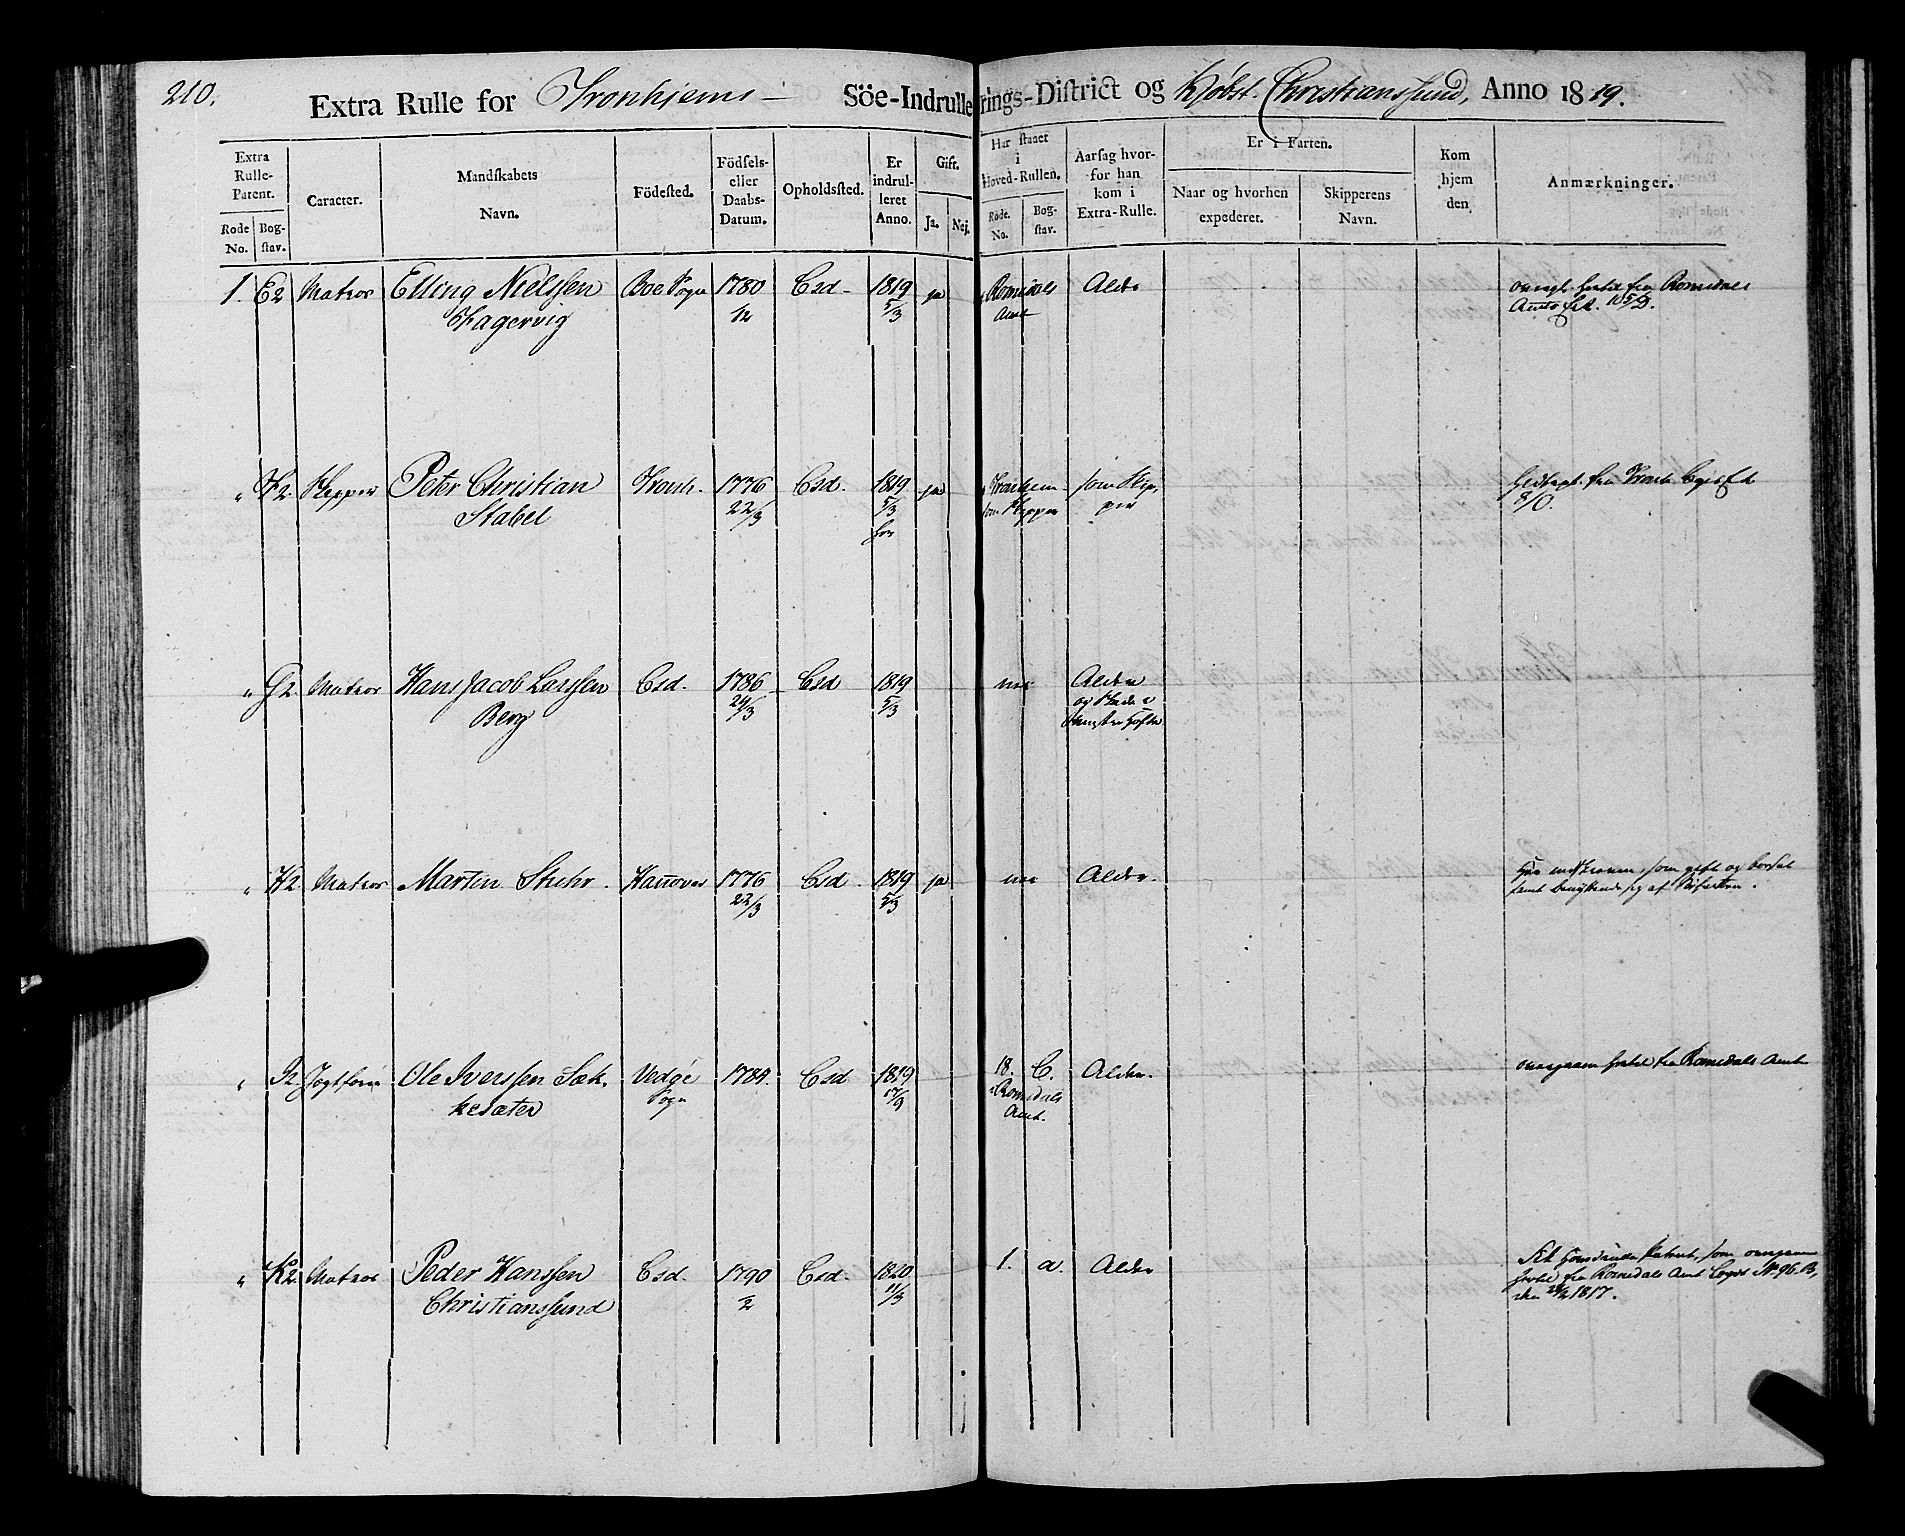 210.
Extra Rulle for Tronhjems Söe-Indrullerings-District og Kjøbst. Christianssund, Anno 1819.
Extra Rulle-Patent. Caracter. Mandskabets Navn. Födested. Födsels- eller Daabs-Datum. Opholdsted. Er indrulleret Anno. Gift. Har staaet i Hoved-Rullen. Aarsag hvorfor han kom i Extra-Rulle. Er i Farten. Kom hjem den Anmærkninger.
Rode No. Bogstav. Ja. Nej. Rode. No. Bogstav. Naar og hvorhen expederet. Skipperens Navn.
1. E2 Matros Elling Nielssen Boe Sogn 1780 Csd. 1819 ja Romsdals Alder fra Romsdals
Hagervig 1/2 5/3 Amt Amts
" F2. Skipper Peter Christian Tronh. 1776 Csd. 1819 ja Tronhiem som Skip-
Stabel 22/3 5/3 som Skipper per 8/O.
" G2. Matros Hans Jacob Larssen Csd. 1786 Csd 1819 nei Alder
Berg 24/3 5/3 og
" H2 Matros Martin Stuhr. Hannover 1776 Csd. 1819 ja nei Alder. som gift og
22/3 5/3 samt sig af
" I2 Ole Iverssen Sæk- Vedøe 1784. Csd 1819 18. C. Alder. fra Romsdals Amt
kesæter Sogn 17/9 Romsdals
Amt.
" K2. Matros Peder Hanssen Csd. 1790 Csd. 1820 1. a. Alder Patent, som
Christianssund 1/2 11/3 fra Romsdals Amt No 96. B,
den 1817.